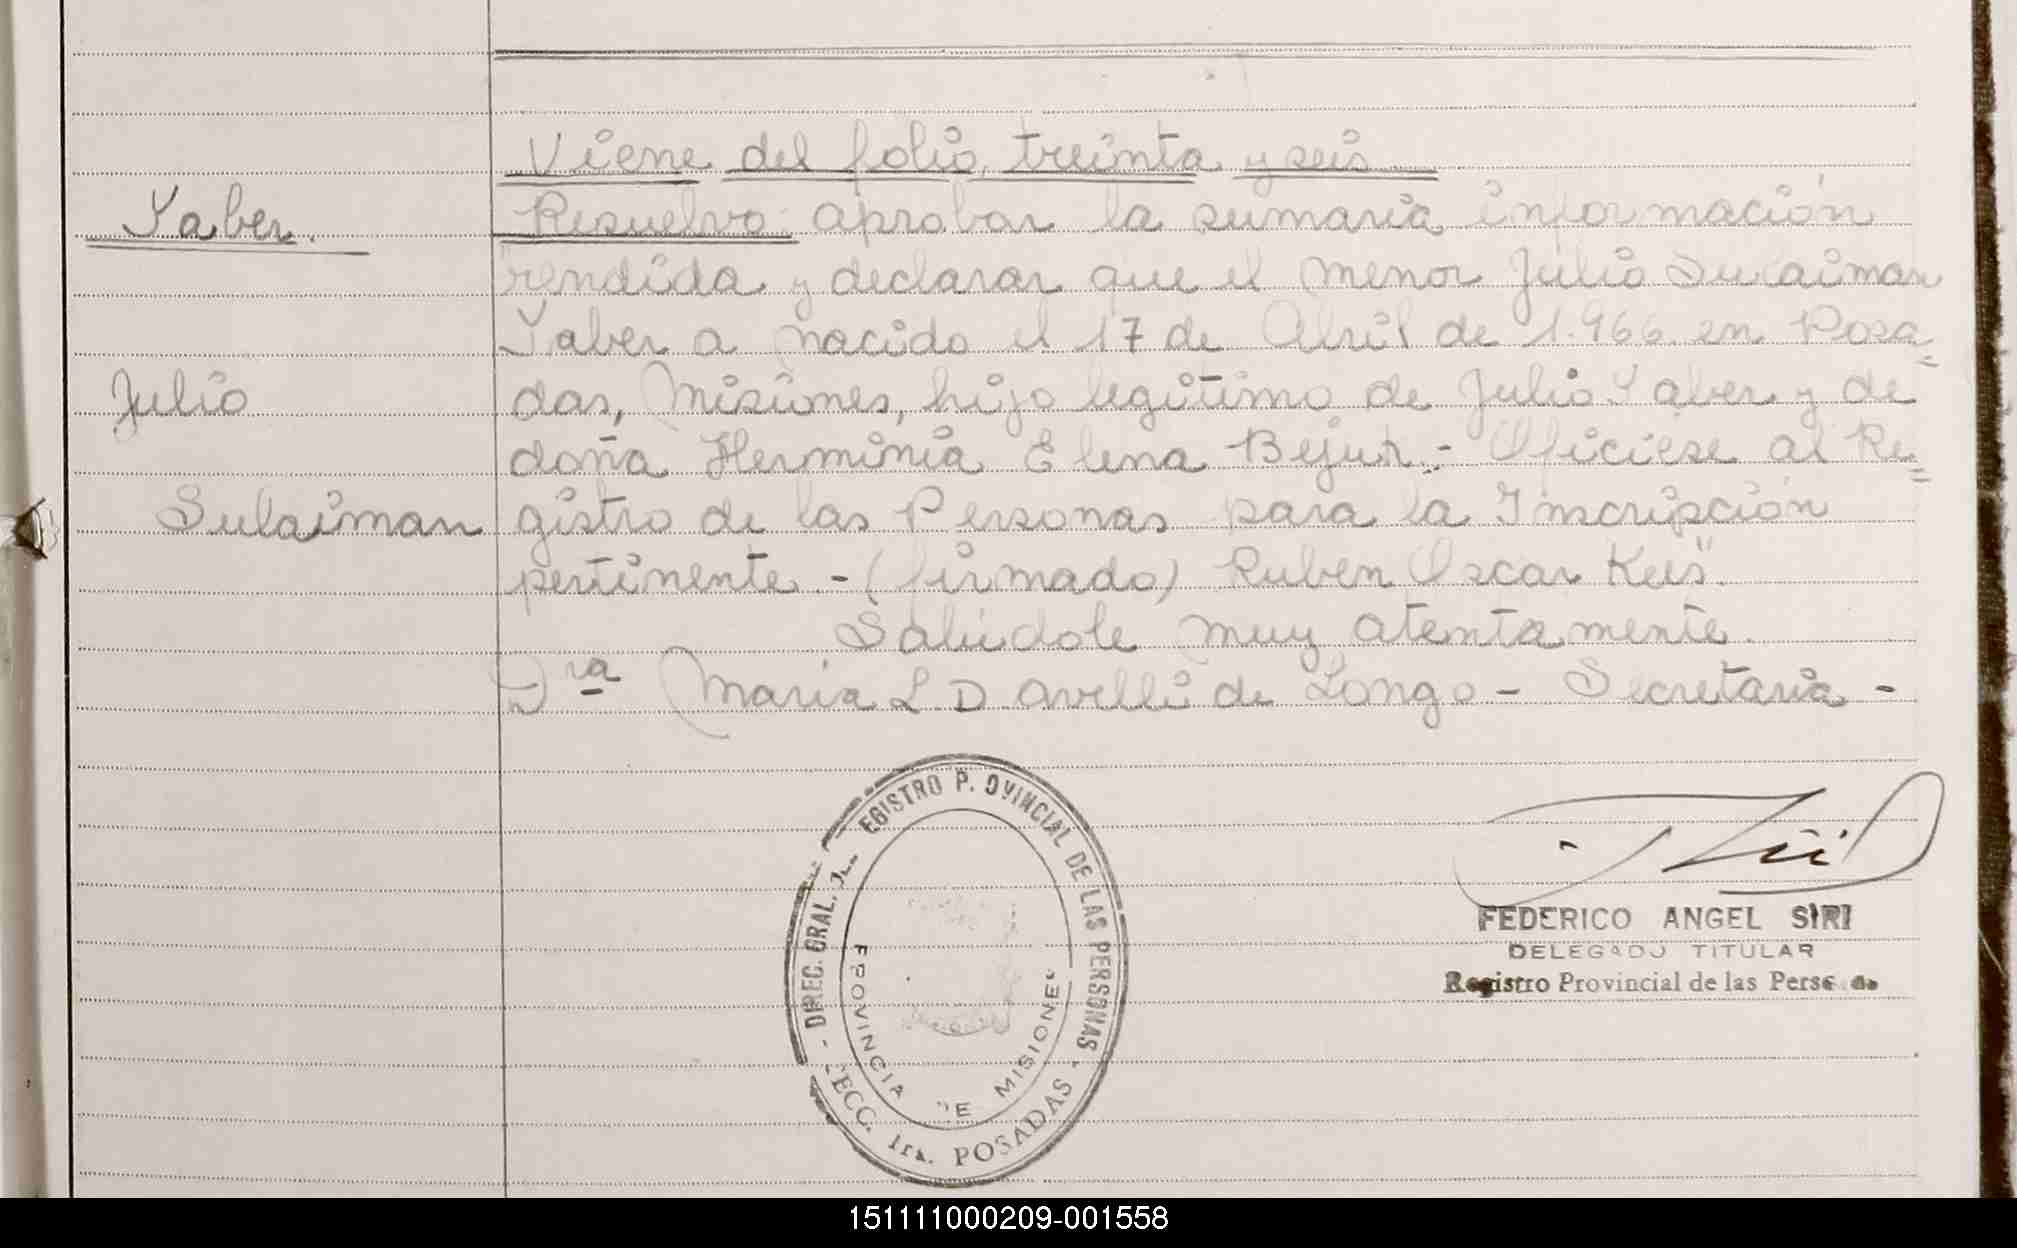 Viene del folio treinta y seis
Yaber.
Resuelvo: aprobar la sumaria información
rendida y declarar que el menor Julio Sulaiman
Yaber a nacido el 17 de Abril de 1.966 en Posa=
Julio
das, Misiones, hijo legítimo de Julio Yaber y de
doña Herminia Elena Bejur.- Ofíciese al Re=
Sulaiman
gistro de las Personas para la Inscripción
pertinente.- (firmado) Ruben Oscar Keis".
Salúdole muy atentamente.
Dra Maria L. D. Avelli de Longo - Secretaria -
DIREC. GRAL. EGISTRO P. OVINCIAL DE LAS PERSONAS
PROVINCIA DE MISIONES
SECC. 1ra. POSADAS
FEDERICO ANGEL SIRI
DELEGADO TITULAR
Registro Provincial de las Personas
151111000209-001558